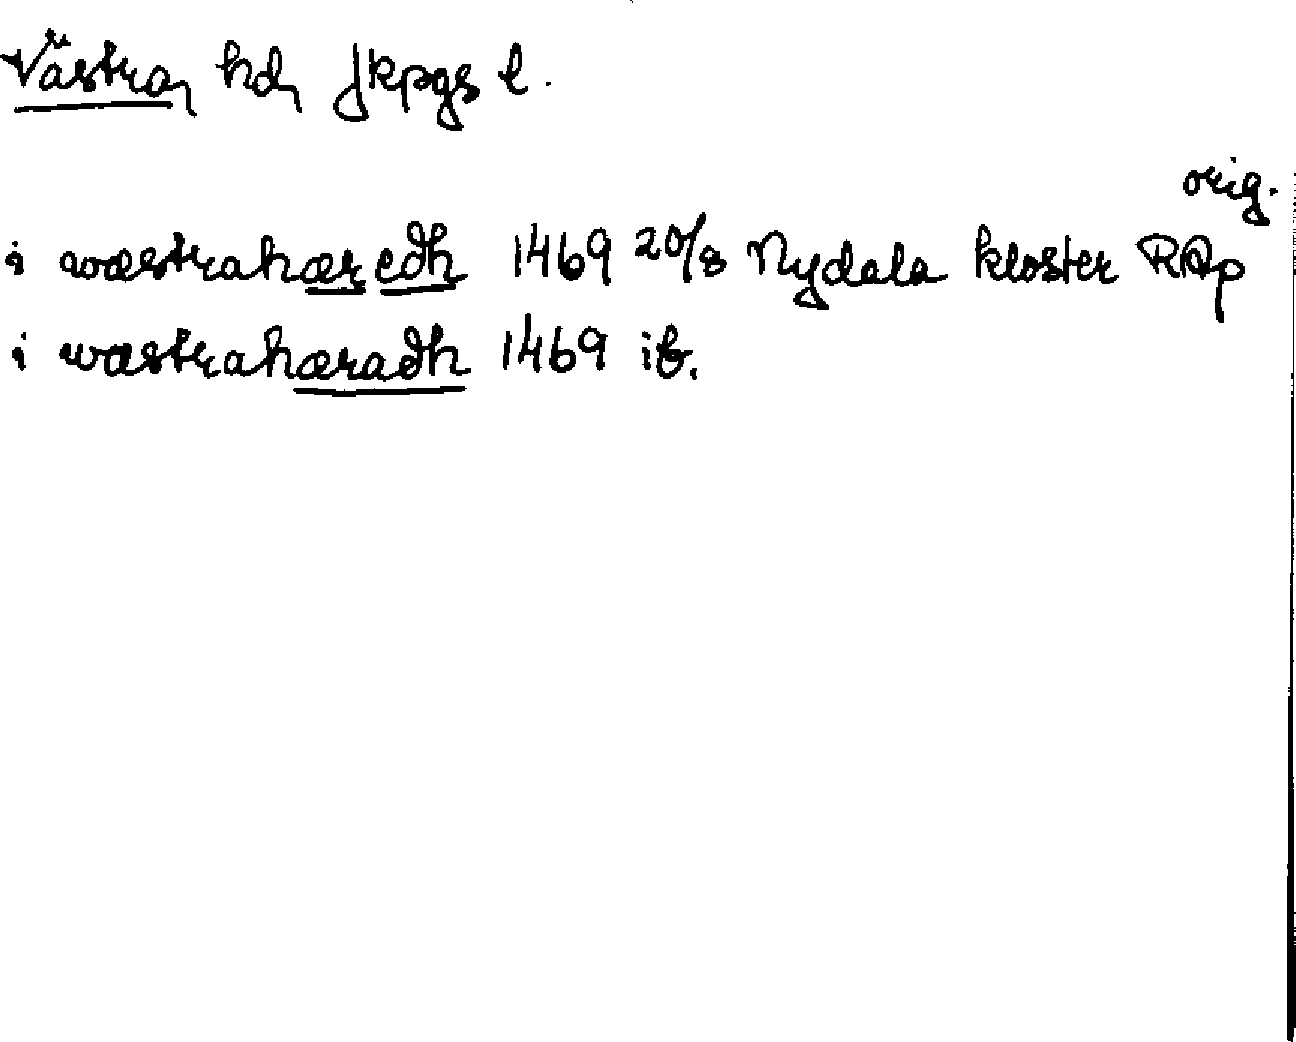 Västra hd, Jkpgs l.
orig.
i wæstrahæredh 1469 20/8 Nydala kloster RAp
i wæstrahæradh 1469 ib.